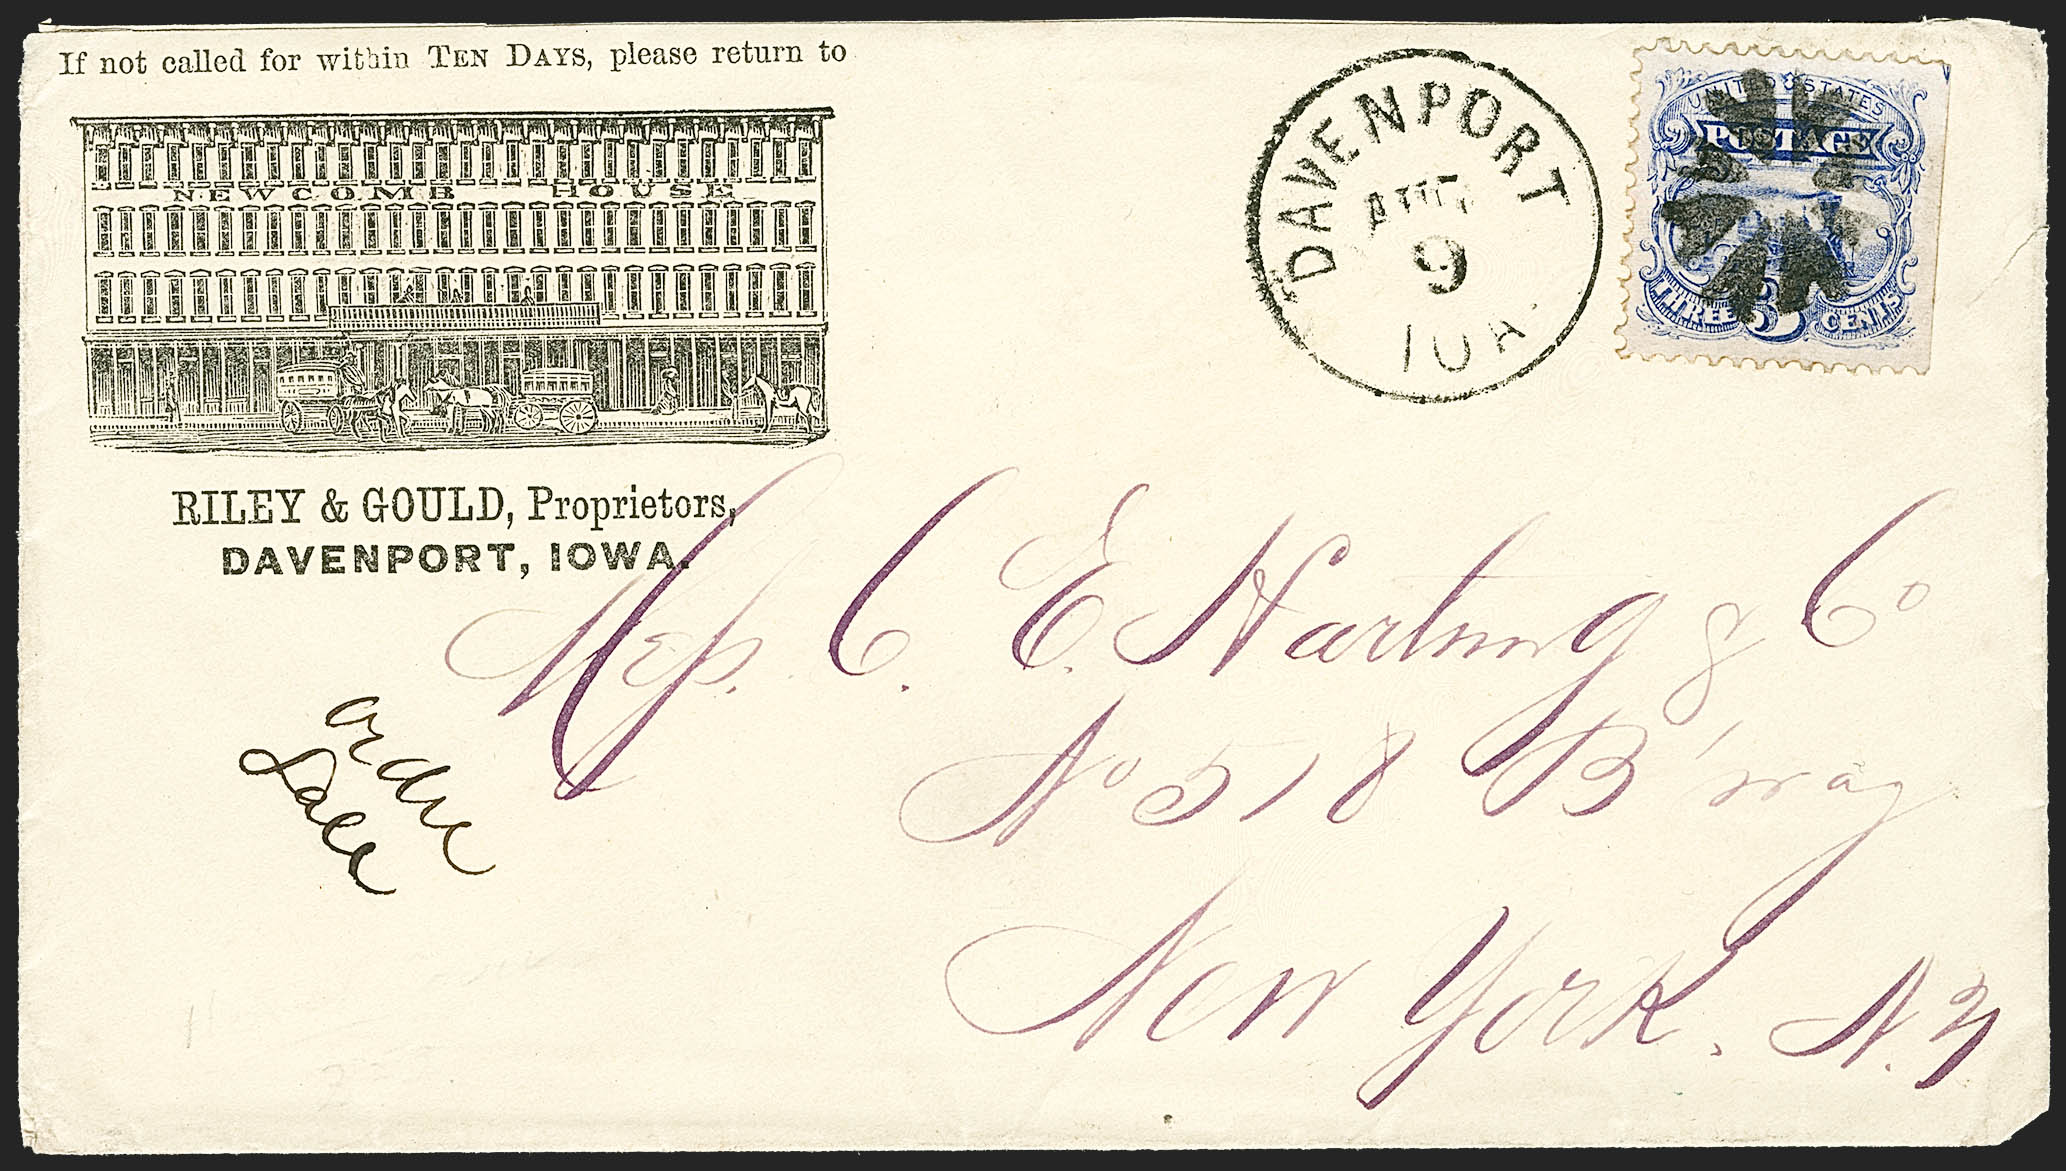 If not called for within TEN DAYS, please return to
NEWCOMB HOUSE
RILEY & GOULD, Proprietors,
DAVENPORT, IOWA.
DAVENPORT
AUG
9
IOA.
UNITED STATES
POSTAGE
THREE 3 CENTS
C. E. Hartung & Co
No 518 B'way
New York. N. Y